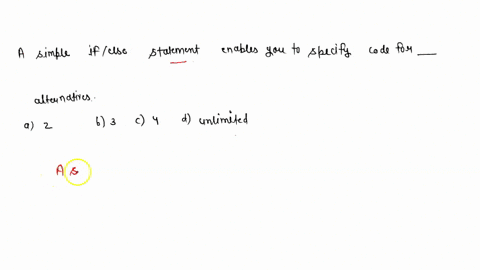 A simple if/else statement enables you to specify code for ___
alternatives.
a) 2 b) 3 c) 4 d) unlimited
A s